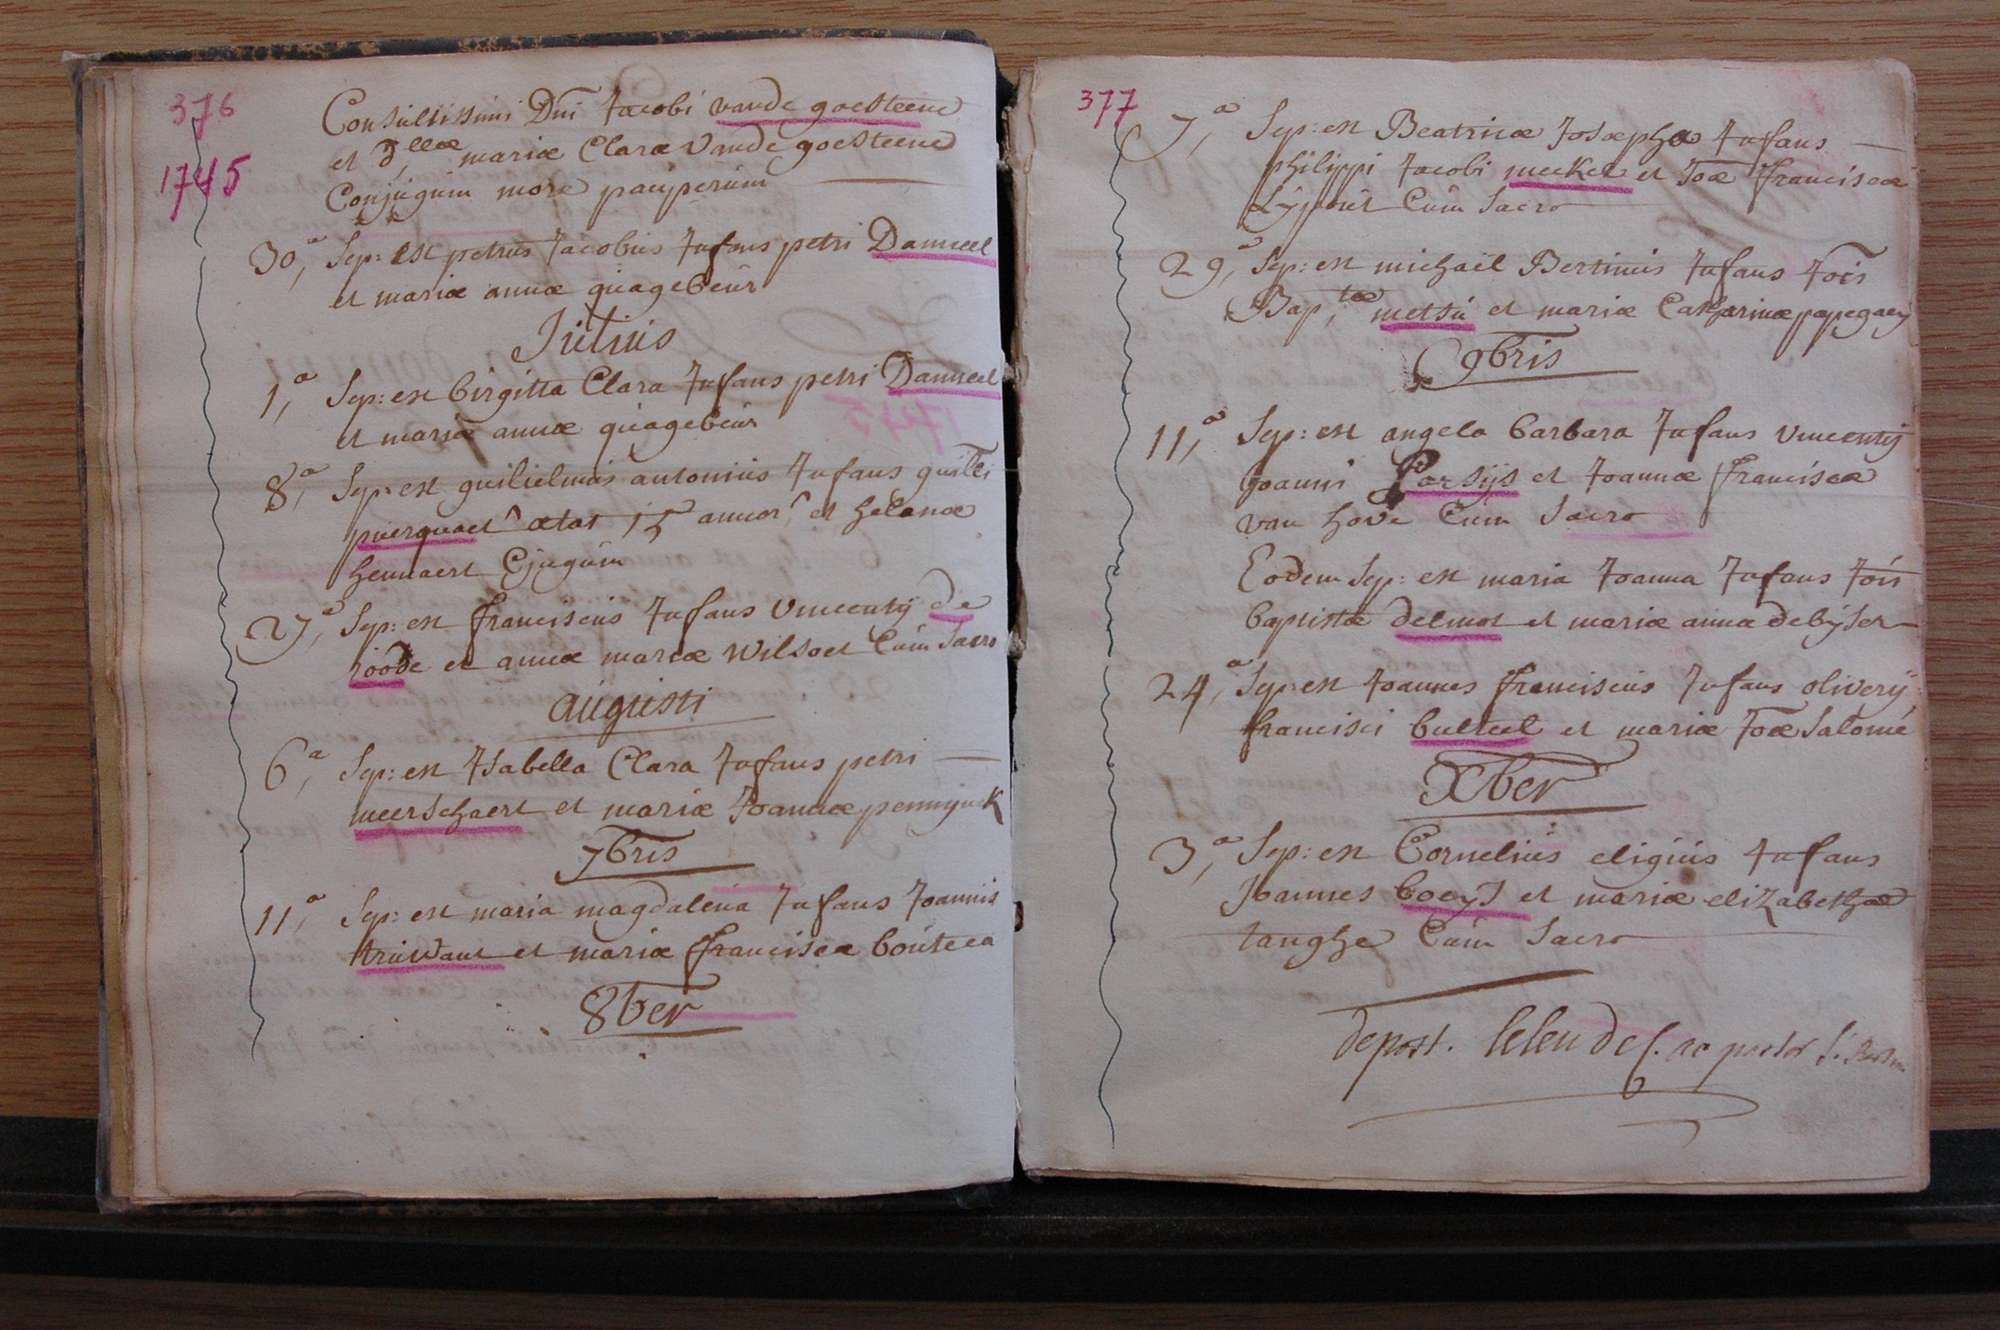 376
1745
Consultissimi Dni Jacobi vande goesteene
et D,llæ mariæ Claræ Vande goesteene
Conjugum more pauperum
30,a Sep: est petrus Jacobus Infans petri Danneel
et mariæ annæ quagebeur
Julius
1,a Sep: est birgitta Clara Infans petri Danneel
et mariæ annæ quagebeur
8,a Sep: est guilielmus antonius Infans
puerquaet ætat 15 annor, et helenæ
hennaert Cjugum
27,a Sep: est franciscus Infans Vincentij de
roode et annæ mariæ Wilsoet Cum Sacro
augusti
6,a Sep: est Isabella Clara Infans petri
meerschaert et mariæ Joannæ pennijnck
7bris
11,a Sep: est maria magdalena Infans Joannis
truwant et mariæ franciscæ bouteca
8ber
377
7,a Sep: est Beatricæ Josæpha Infans
philippi Jacobi meeker et Joæ franciscæ
Lijpout Cum Sacro
29,a Sep: est michaël Bertinus Infans Jois
Bap,tæ metsu et mariæ Catharinæ papegaeij
9bris
11,a Sep: est angela barbara Infans Vincentij
joanni Parsijs et Joannæ franciscæ
van hove Cum Sacro
Eodem Sep: est maria Joanna Infans Jois
baptistæ delmot et mariæ annæ debijser
24,a Sep: est Joannes franciscus Infans oliverij
francisci bulteel et mariæ Joæ Salomé
Xber
3,a Sep: est Cornelius eligius Infans
Joannes boeijs et mariæ elizabethæ
tanghe Cum Sacro
depost. leleu des. ac pastor S. Bertin